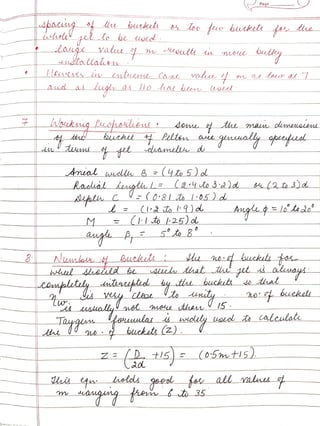 spacing of the buckets or too few buckets for the
whole jet to be used.
• Large value of m results in more bulky
installation.
• However in extreme case value of m as low as 7
and as high as 110 has been used.
7 Working Proportions : Some of the main dimensions
of the bucket of Pelton are generally specified
in terms of jet diameter d
Axial width B = (4 to 5) d
Radial length L = (2.4 to 3.2)d or (2 to 3)d
Depth C = (0.81 to 1.05) d
l = (1.2 to 1.9) d Angle φ = 10° to 20°
M = (1.1 to 1.25) d
angle β₁ = 5° to 8°
8 Number of Buckets : The no. of buckets for
wheel should be such that the jet is always
completely intercepted by the buckets so that
η w. is very close to unity no. of buckets
is usually not more than 15.
Taygun formulas is widely used to calculate
the no. of buckets (Z).
Z = (D/2d + 15) = (0.5m + 15).
This eqn. holds good for all values of
m ranging from 6 to 35